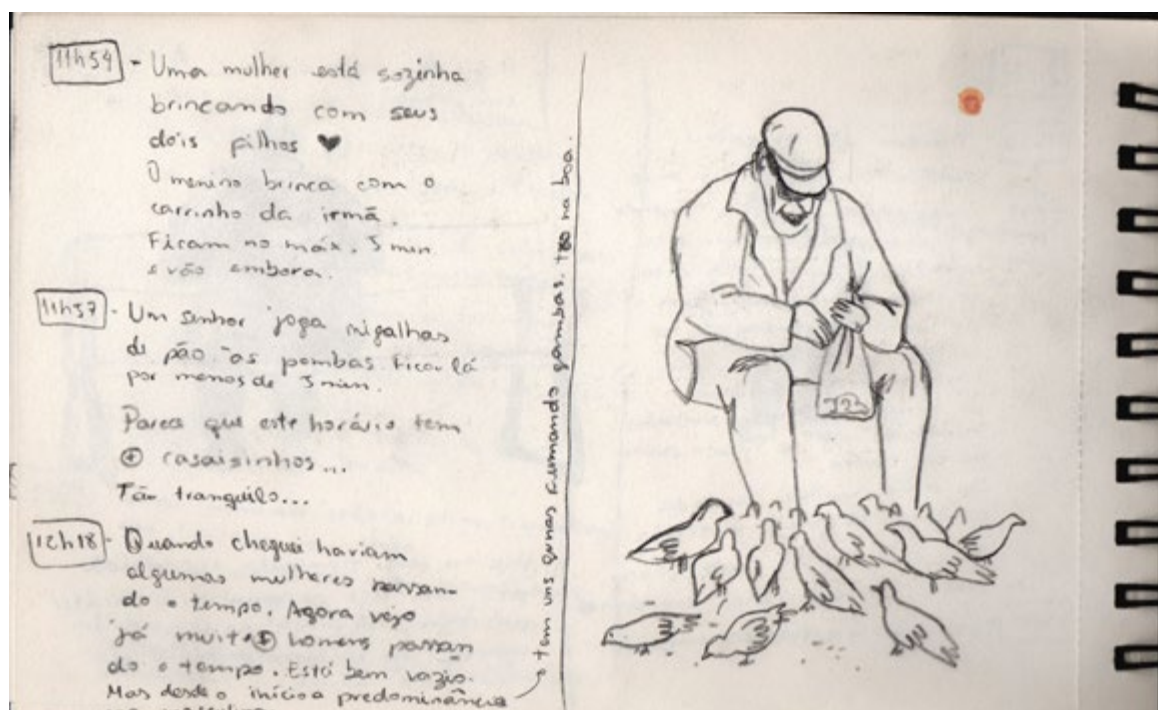 11h54 - Uma mulher está sozinha
brincando com seus
dois filhos ♥
O menino brinca com o
carrinho da irmã.
Ficam no máx. 5 min.
e vão embora.
11h57 - Um senhor joga migalhas
de pão às pombas. Ficou lá
por menos de 5 min.
Parece que este horário tem
⊕ casaisinhos...
Tão tranquilo...
12h18 - Quando cheguei haviam
algumas mulheres passan-
do o tempo. Agora vejo
já muitos homens passan
do o tempo. Está bem vazio.
Mas desde o início a predominância
tem uns fumando na boa.